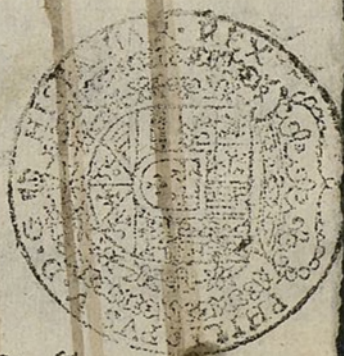 PHIL PVS V.D.G. HISPANIAR. REX